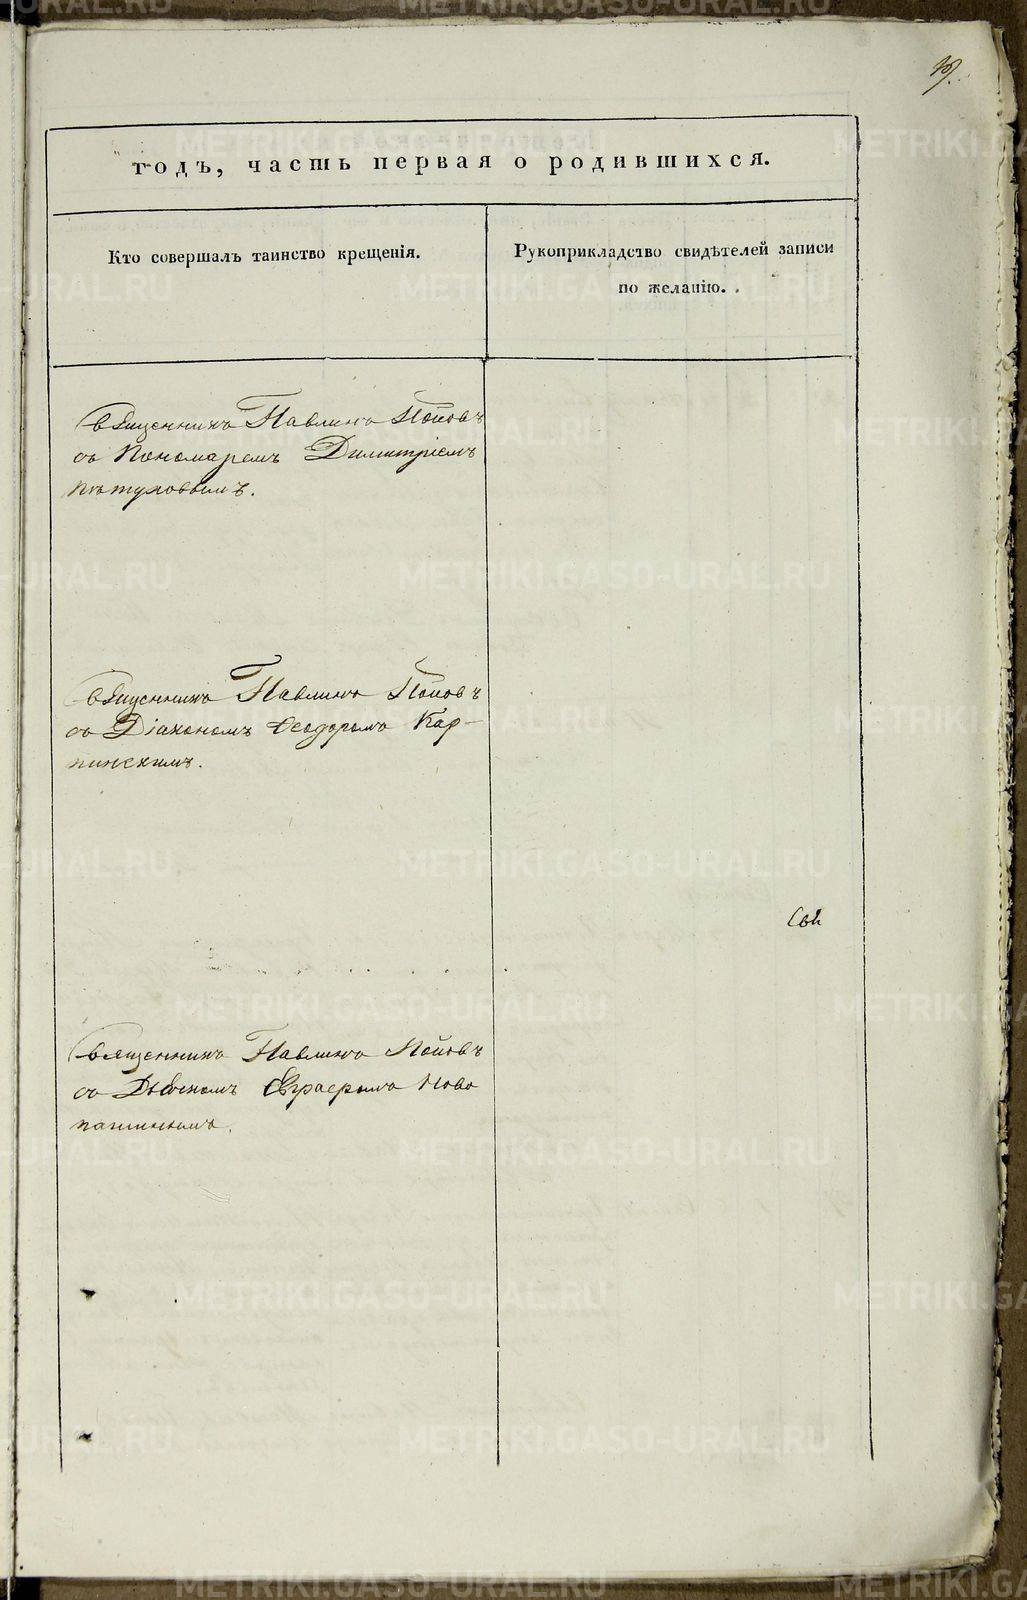 годъ, часть первая о родившихся.
Кто совершалъ таинство крещенія.
Рукоприкладство свидѣтелей записи
по желанію.
Священникъ Павлинъ Поповъ
съ Пономаремъ Димитріемъ
Пѣтуховымъ.
Священникъ Павлинъ Поповъ
съ Діакономъ Ѳеодоромъ Кар-
пинскимъ.
Свя
Священникъ Павлинъ Поповъ
съ Дьячкомъ Ново
пашинымъ.
METRIKI.GASO-URAL.RU